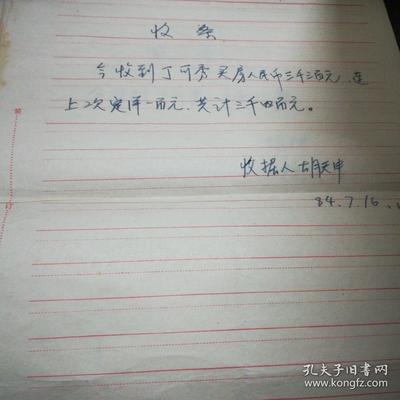 收条
今收到丁可秀买房人民币三千三百元,连
上次定洋一百元,共计三千四百元。
收据人胡天申
84.7.16.
孔夫子旧书网
www.kongfz.com